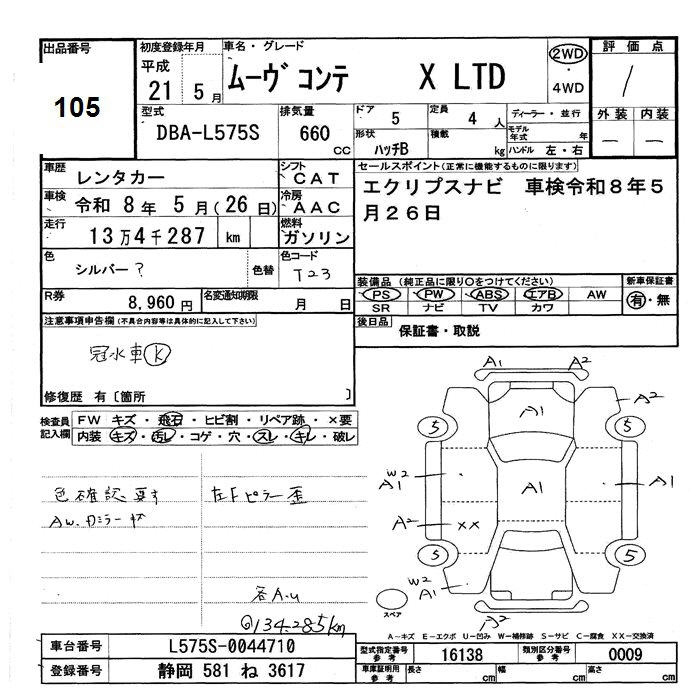 出品番号
105
初度登録年月
平成
21 5月
車名・グレード
ムーヴ コンテ X LTD
2WD
・
4WD
評価点
1
外装 内装
— —
型式
DBA-L575S
排気量
660
CC
ドア
5
定員
4 人
ディーラー・並行
モデル年式 年
形状
ハッチB
積載
kg
ハンドル 左・右
車歴
レンタカー
シフト
CAT
セールスポイント(正常に機能するものに限ります)
エクリプスナビ 車検令和8年5
月26日
車検
令和 8年 5月(26日)
冷房
AAC
走行
13万4千287 km
燃料
ガソリン
色
シルバー?
色替
色コード
T23
装備品 (純正品に限り○をつけてください)
PS PW ABS エアB AW
SR ナビ TV カワ
新車保証書
有・無
R券
8,960円
名変通知期限
月 日
後日品
保証書・取説
注意事項申告欄(不具合内容等は具体的に記入して下さい)
冠水車 K
修復歴 有〔箇所 〕
検査員
記入欄
FW キズ・飛石・ヒビ割・リペア跡・×要
内装 キズ・汚レ・コゲ・穴・スレ・キレ・破レ
色確認要す
左Fピラー歪
Aw.
各A.u
134.285km
A1 A2
A1
A2
5 5
W2
A1
A1
A1
A2
XX
5 5
W2
A1
スペア
A—キズ E—エクボ U—凹み W—補修跡 S—サビ C—腐食 XX—交換済
車台番号
L575S-0044710
登録番号
静岡 581 ね 3617
型式指定番号
参考
16138
類別区分番号
参考
0009
車庫証明用
参考
長さ cm
幅 cm
高さ cm